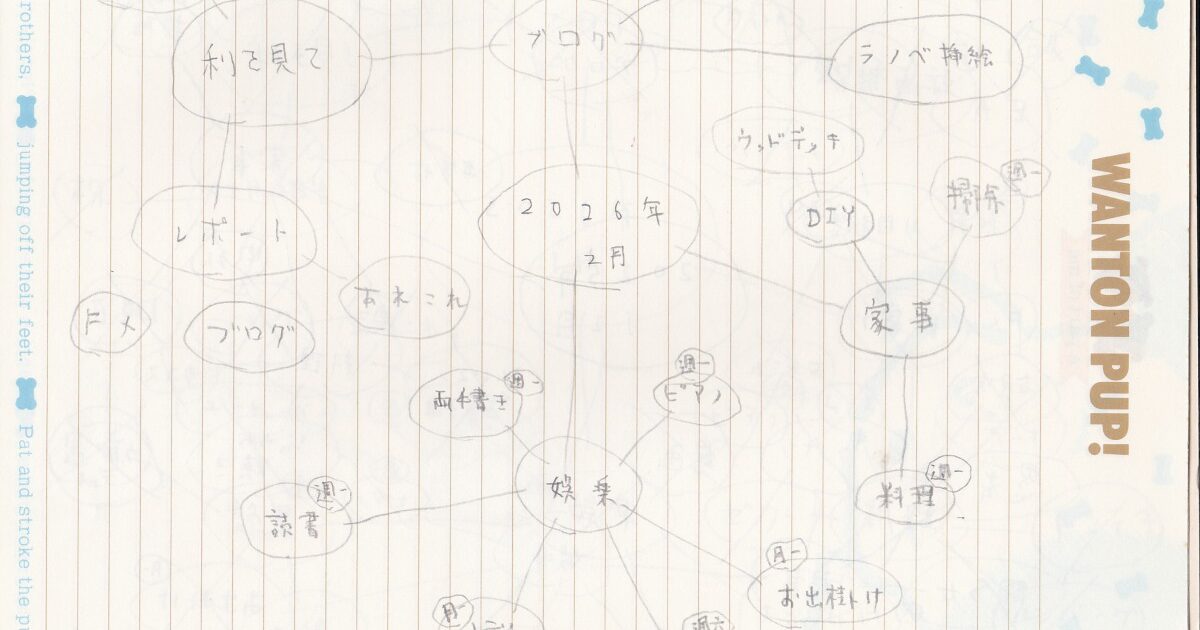 rothers,
jumping off their feet.
Pat and stroke the pu
WANTON PUP!
利を見て
ブログ
ラノベ挿絵
ウッドデッキ
週一
掃除
DIY
2026年
2月
レポート
あれこれ
家事
ドメ
ブログ
週一
両手書き
週一
ピアノ
娯楽
週一
読書
週一
料理
月一
お出掛け
月一